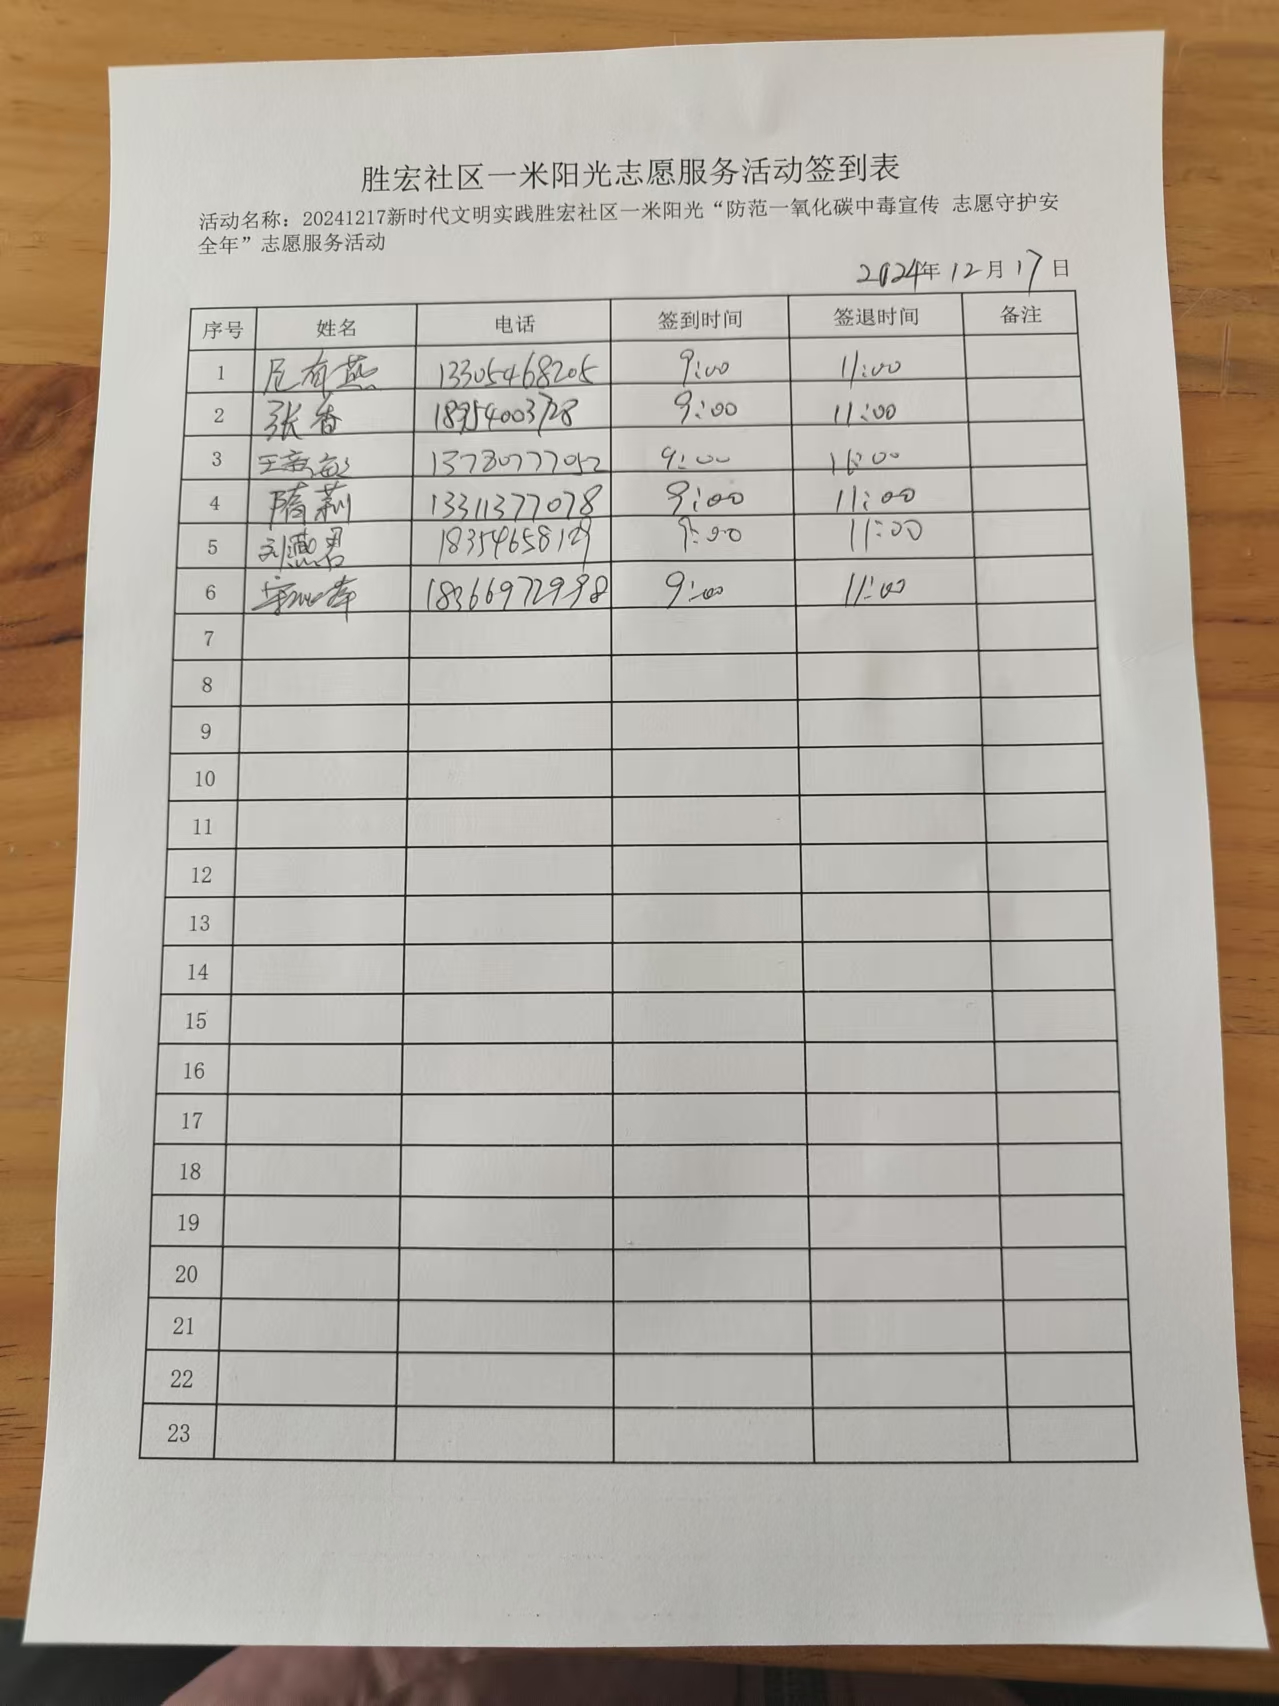 胜宏社区一米阳光志愿服务活动签到表
活动名称：20241217新时代文明实践胜宏社区一米阳光“防范一氧化碳中毒宣传 志愿守护安
全年”志愿服务活动
2024年12月17日
序号 姓名 电话 签到时间 签退时间 备注
1 13305468205 9:00 11:00
2 张香 18954003728 9:00 11:00
3 13780777052 9:00
4 隋莉 13311377078 9:00 11:00
5 刘燕君 18354658129 9:00 11:00
6 18366972998 9:00 11:00
7
8
9
10
11
12
13
14
15
16
17
18
19
20
21
22
23